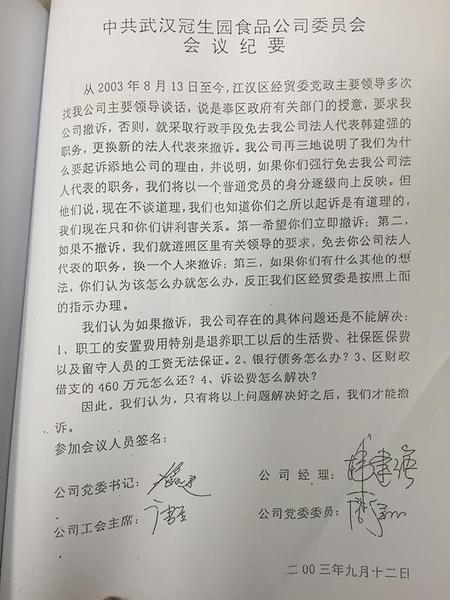 中共武汉冠生园食品公司委员会
会议纪要
从2003年8月13日至今,江汉区经贸委党政主要领导多次
找我公司主要领导谈话，说是奉区政府有关部门的授意，要求我
公司撤诉，否则，就采取行政手段免去我公司法人代表韩建强的
职务，更换新的法人代表来撤诉。我公司再三地说明了我们为什
么要起诉添地公司的理由，并说明，如果你们强行免去我公司法
人代表的职务，我们将以一个普通党员的身分逐级向上反映。但
他们说，现在不谈道理，我们也知道你们之所以起诉是有道理的，
我们现在只和你们讲利害关系。第一希望你们立即撤诉；第二，
如果不撤诉，我们就遵照区里有关领导的要求，免去你公司法人
代表的职务，换一个人来撤诉；第三，如果你们有什么其他的想
法，你们认为该怎么办就怎么办，反正我们区经贸委是按照上面
的指示办理。
我们认为如果撤诉，我公司存在的具体问题还是不能解决：
1、职工的安置费用特别是退养职工以后的生活费、社保医保费
以及留守人员的工资无法保证。2、银行债务怎么办？3、区财政
借支的460万元怎么还？4、诉讼费怎么解决？
因此，我们认为，只有将以上问题解决好之后，我们才能撤
诉。
参加会议人员签名：
公司党委书记： 公司经理：韩建强
公司工会主席： 公司党委委员：
二00三年九月十二日